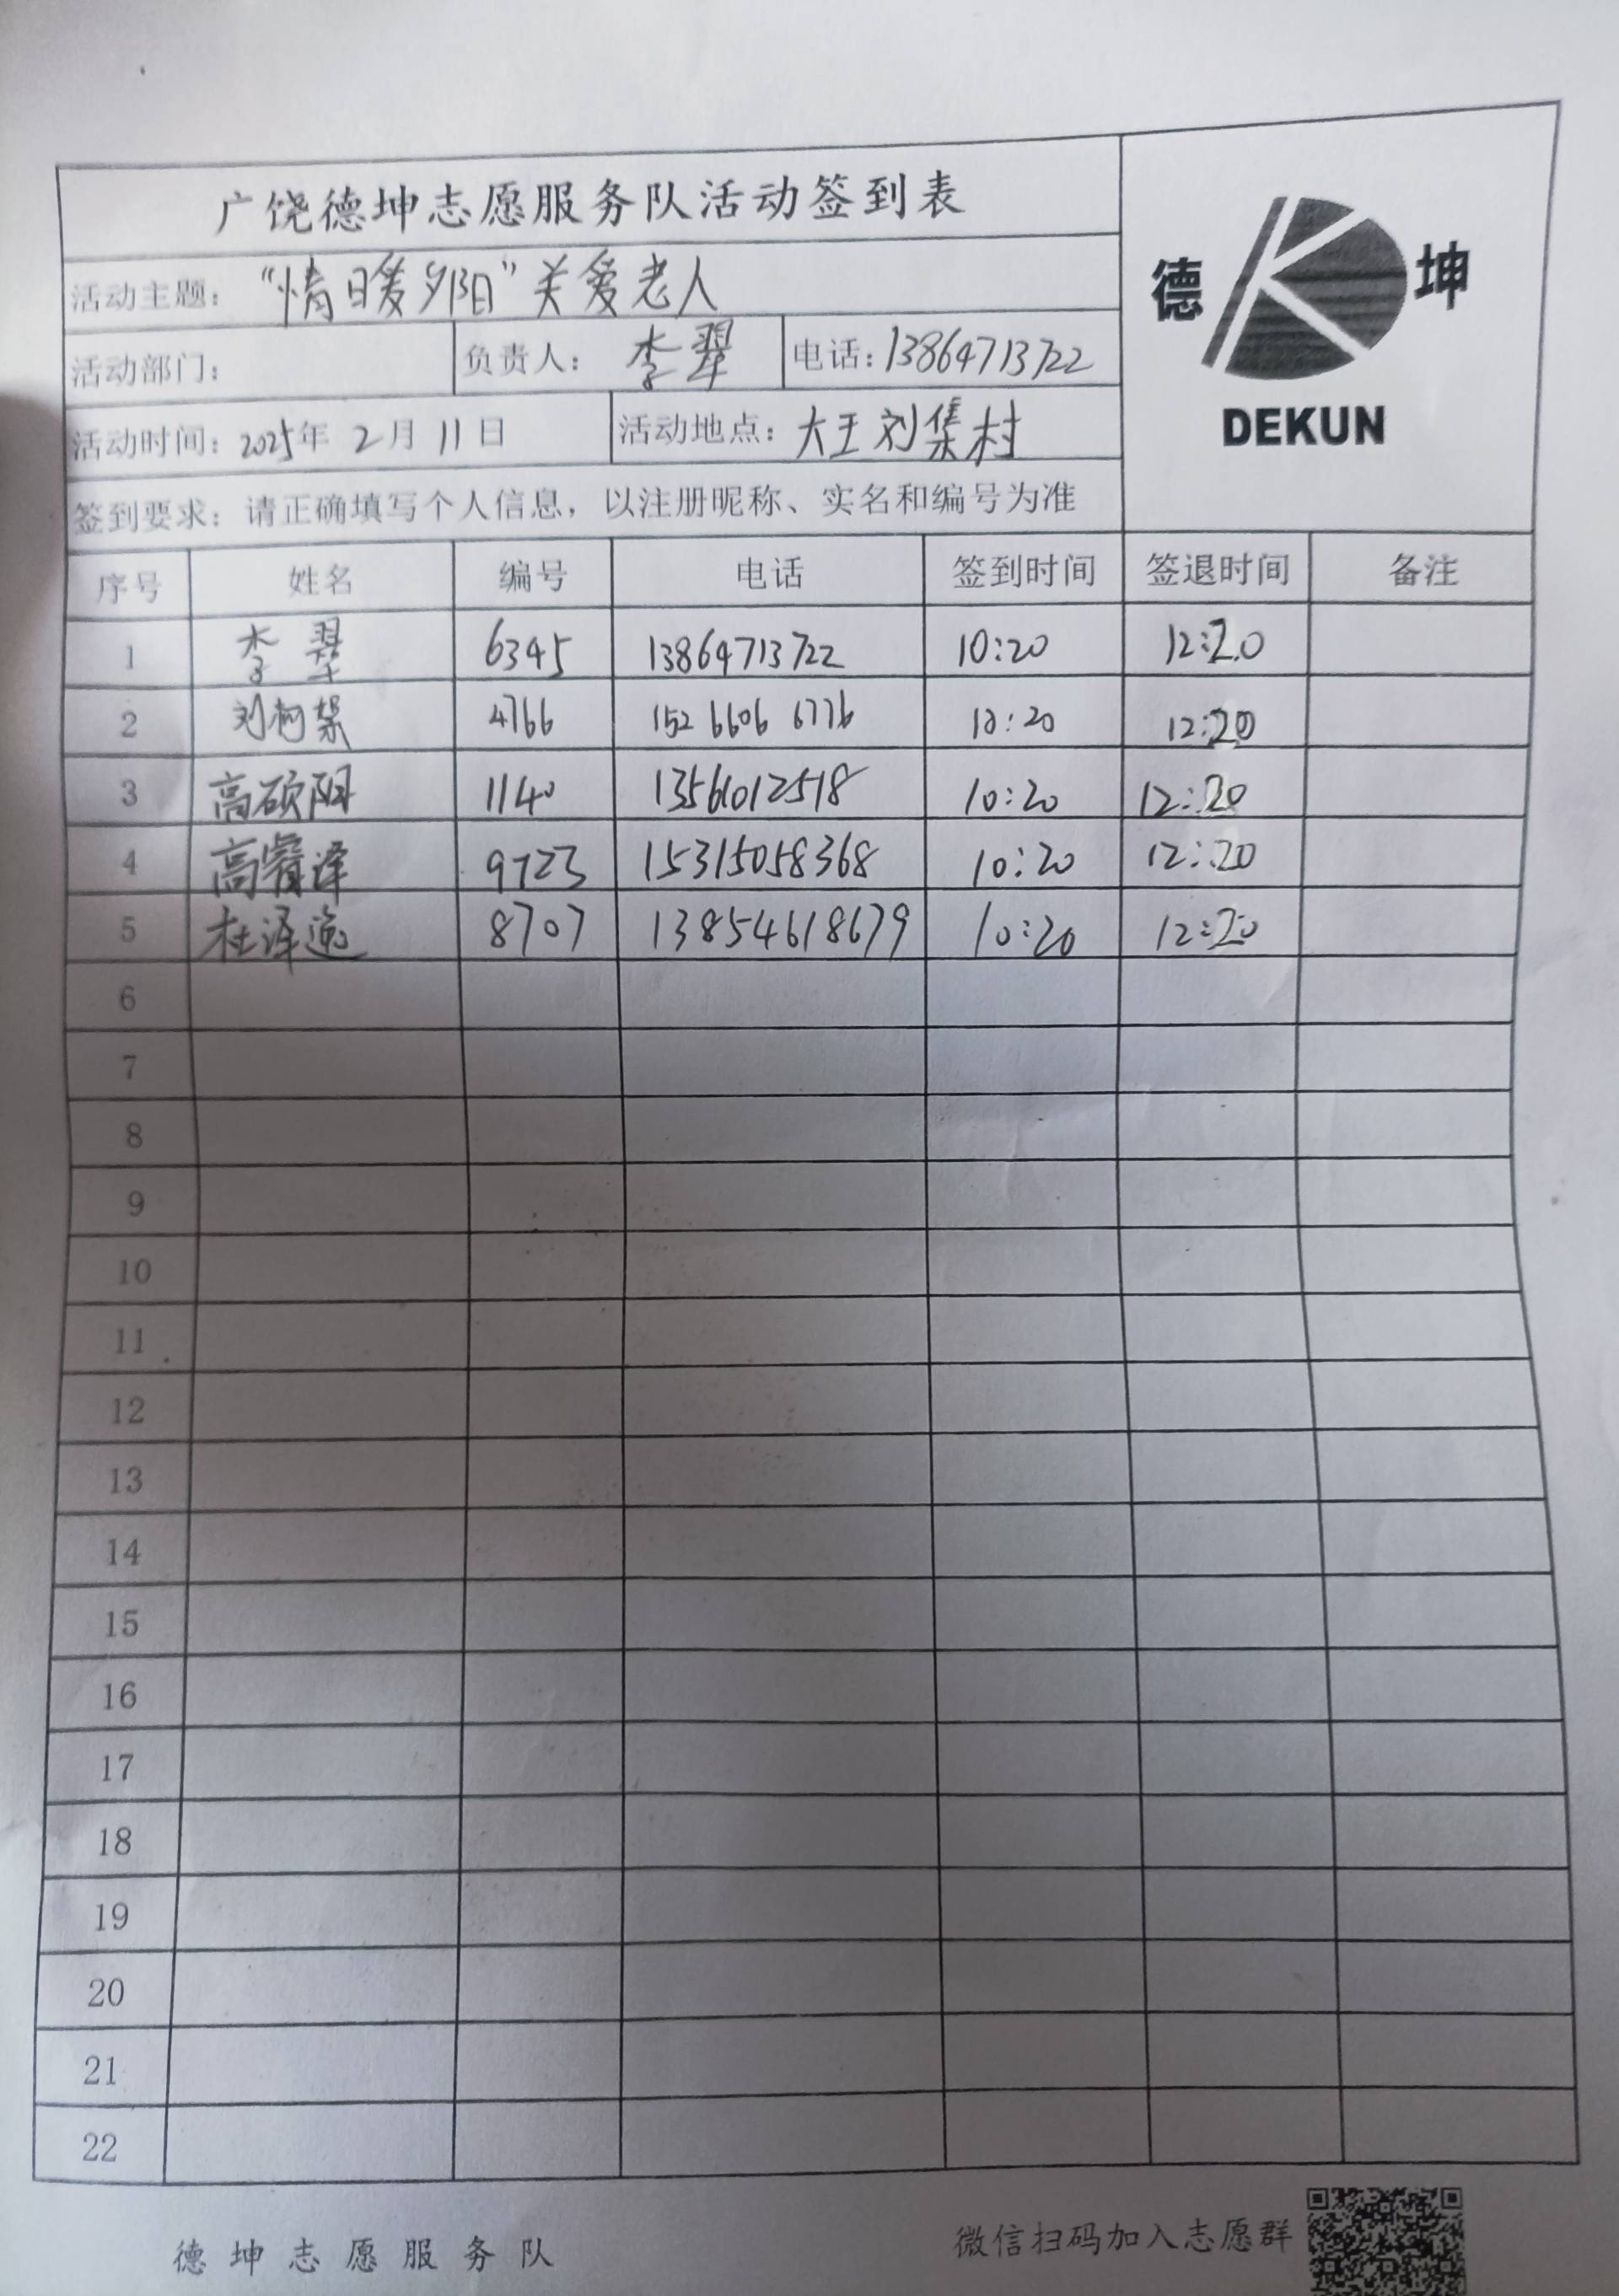 广饶德坤志愿服务队活动签到表
德 坤
DEKUN
活动主题：“情暖夕阳”关爱老人
活动部门： 负责人：李翠 电话：13864713722
活动时间：2025年 2月 11日 活动地点：大王刘集村
签到要求：请正确填写个人信息，以注册昵称、实名和编号为准
序号 姓名 编号 电话 签到时间 签退时间 备注
1 李翠 6345 13864713722 10:20 12:20
2 刘柯 4766 152 6606 6776 10:20 12:20
3 高硕阳 1140 13561012518 10:20 12:20
4 高睿泽 9723 15315058368 10:20 12:20
5 杜泽逸 8707 13854618679 10:20 12:20
6
7
8
9
10
11
12
13
14
15
16
17
18
19
20
21
22
德坤志愿服务队 微信扫码加入志愿群